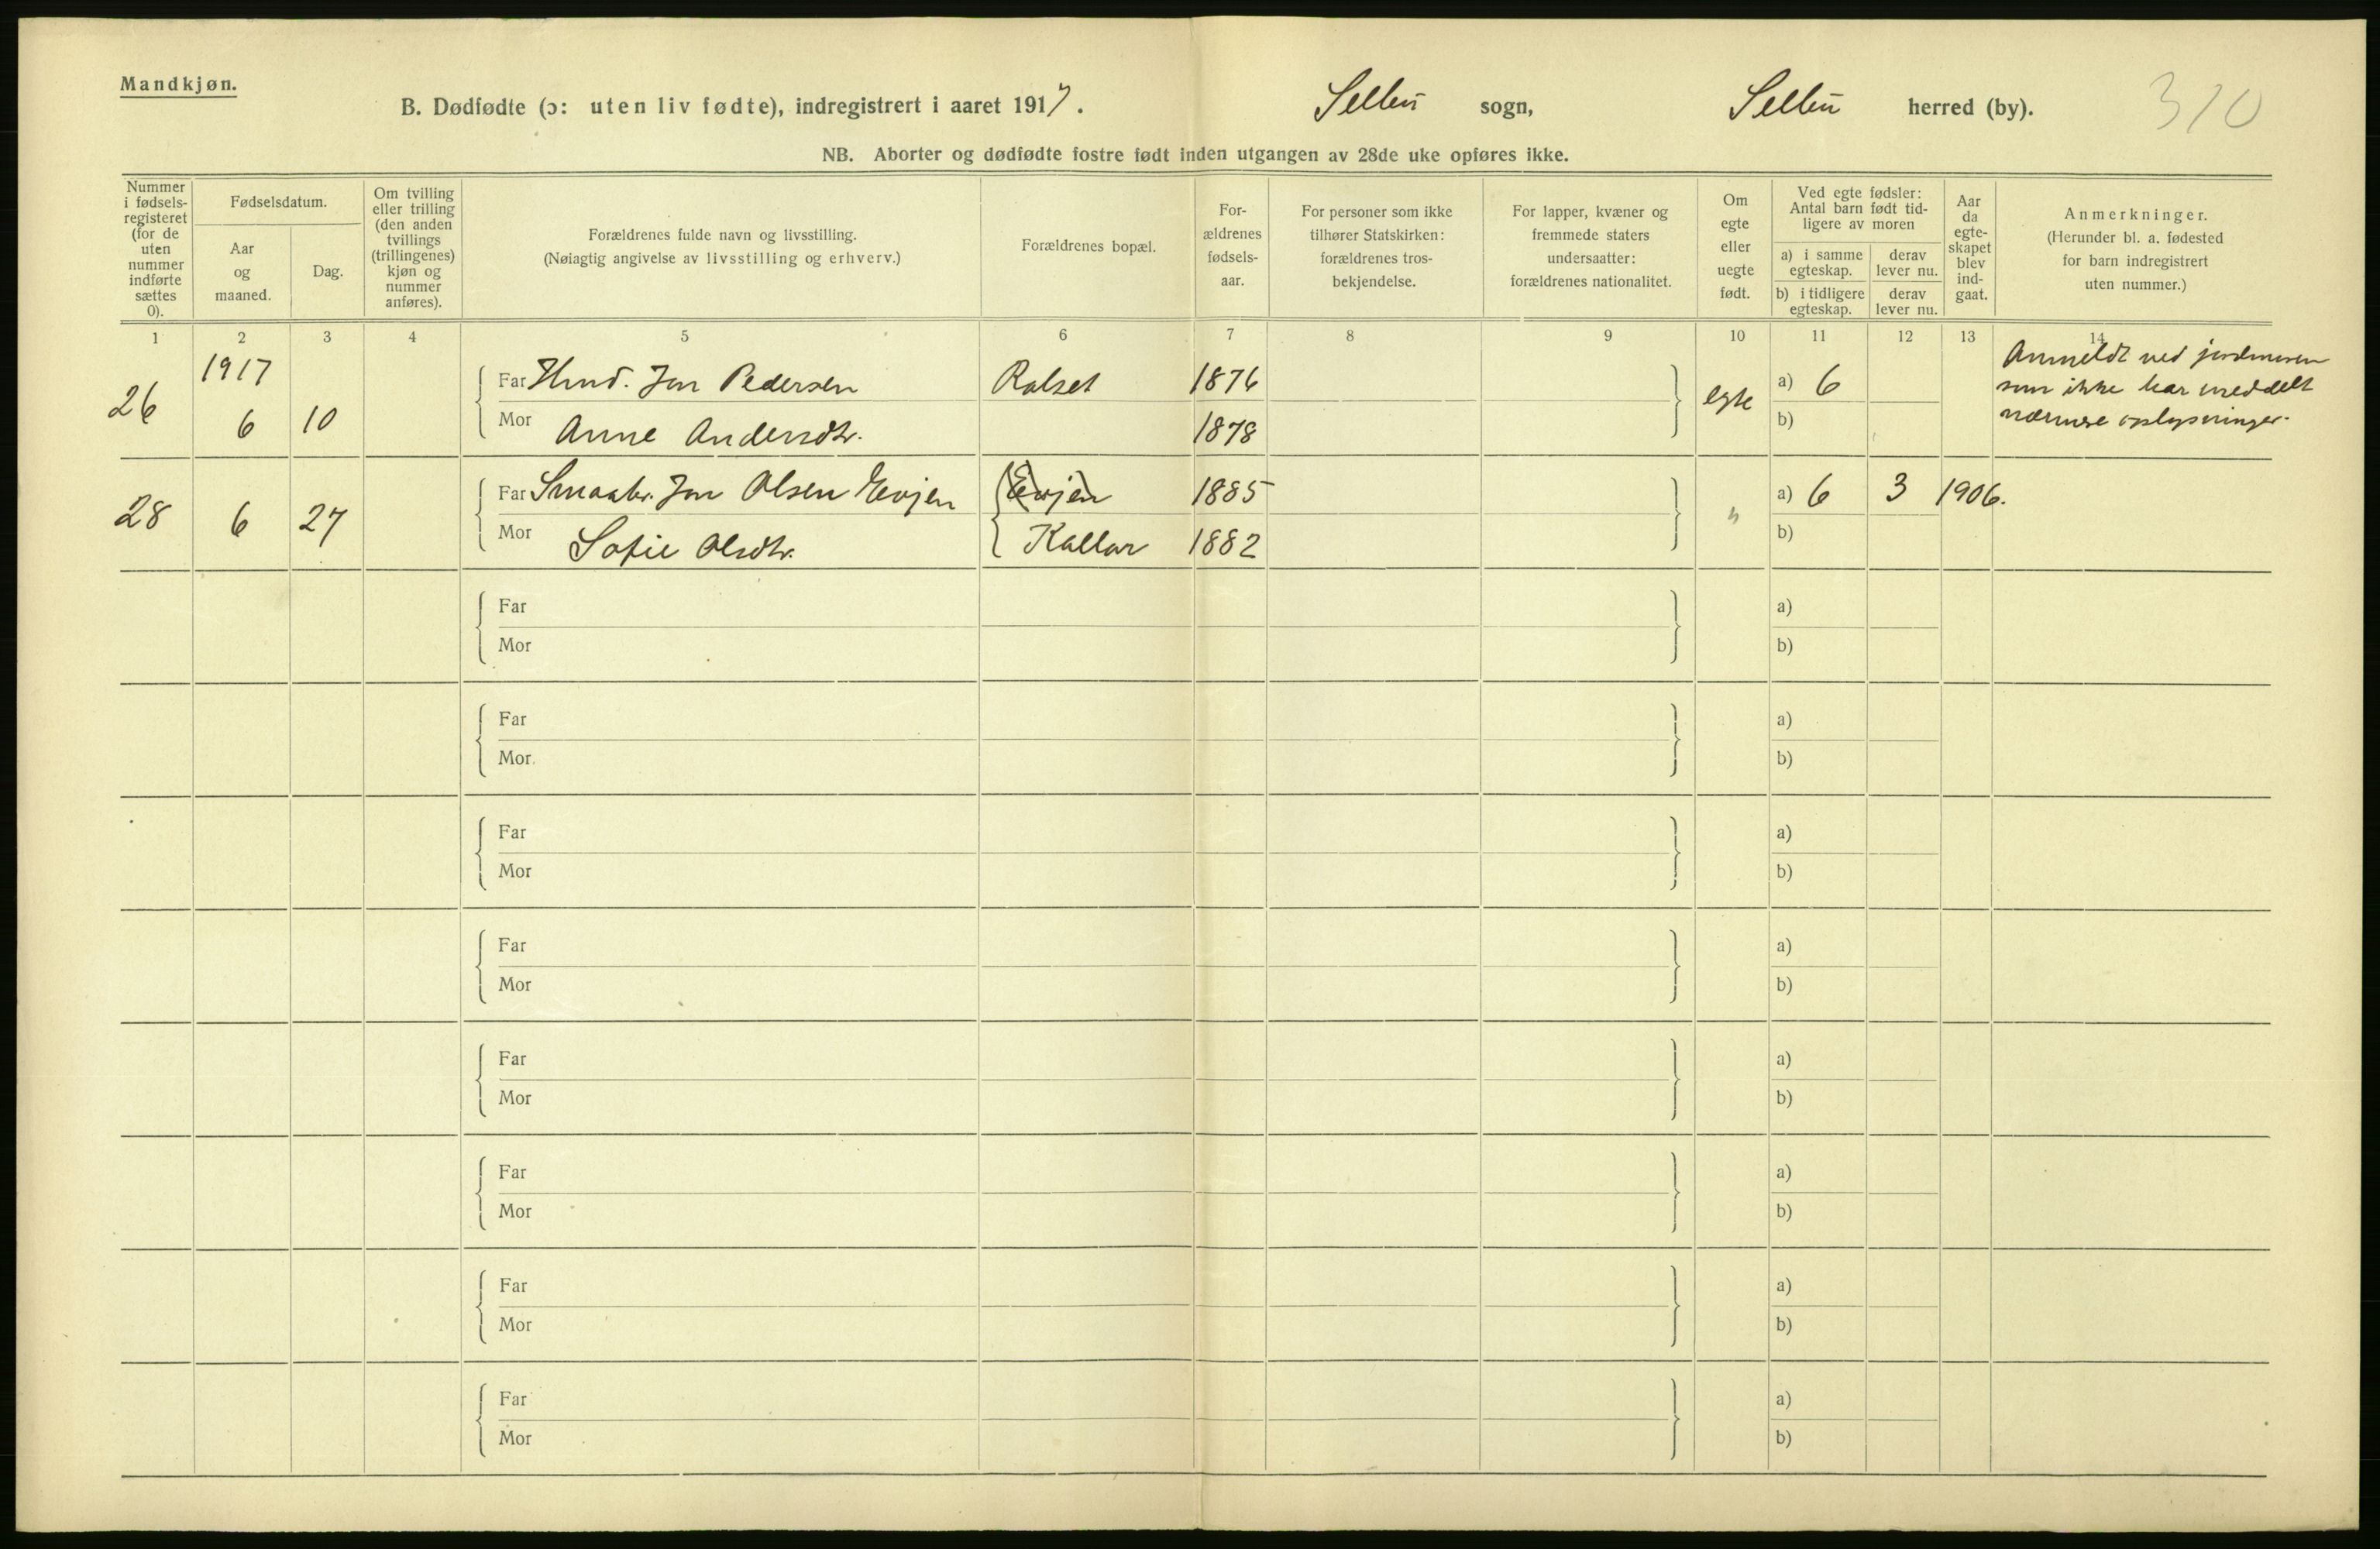 Mandkjøn.
B. Dødfødte (ɔ: uten liv fødte), indregistrert i aaret 1917. Selbu sogn, Selbu herred (by). 310
NB. Aborter og dødfødte fostre født inden utgangen av 28de uke opføres ikke.
Nummer
i fødsels-
registeret
(for de
uten
nummer
indførte
sættes
0).
Fødselsdatum.
Aar
og
maaned.
Dag.
Om tvilling
eller trilling
(den anden
tvillings
(trillingenes)
kjøn og
nummer
anføres).
Forældrenes fulde navn og livsstilling.
(Nøiagtig angivelse av livsstilling og erhverv.)
Forældrenes bopæl.
For-
ældrenes
fødsels-
aar.
For personer som ikke
tilhører Statskirken:
forældrenes tros-
bekjendelse.
For lapper, kvæner og
fremmede staters
undersaatter:
forældrenes nationalitet.
Om
egte
eller
uegte
født.
Ved egte fødsler:
Antal barn født tid-
ligere av moren
a) i samme
egteskap.
derav
lever nu.
b) i tidligere
egteskap.
derav
lever nu.
Aar
da
egte-
skapet
blev
ind-
gaat.
Anmerkninger.
(Herunder bl. a. fødested
for barn indregistrert
uten nummer.)
1 2 3 4 5 6 7 8 9 10 11 12 13 14
1917
26 6 10
Far Hmd. Jon Pedersen Rolset 1876
Mor Anne Andersdtr. 1878
egte
a) 6
b)
Anmeldt ved jordmoren
som ikke har meddelt
nærmere oplysninger.
28 6 27
Far Smaabr. Jon Olsen Evjen Evjen 1885
Mor Sofie Olsdtr. Kallar 1882
"
a) 6 3 1906.
b)
Far a)
Mor b)
Far a)
Mor b)
Far a)
Mor b)
Far a)
Mor b)
Far a)
Mor b)
Far a)
Mor b)
Far a)
Mor b)
Far a)
Mor b)